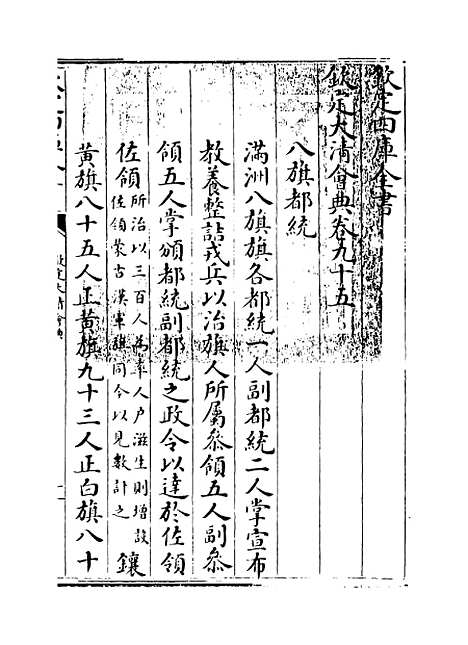 欽定四庫全書
欽定大清會典卷九十五
八旗都統
滿洲八旗旗各都統一人副都統二人掌宣布
教養整詰戎兵以治旗人所屬叅領五人副叅
領五人掌頒都統副都統之政令以達於佐領
佐領所治以三百人為率人户滋生則增設
佐領蒙古漢軍旗同今以見數計之
鑲
黃旗八十五人正黃旗九十三人正白旗八十
欽定大清會典